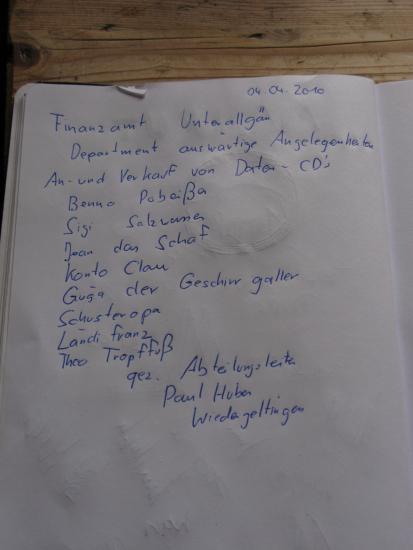 04.04.2010
Finanzamt Unterallgäu
Department auswärtige Angelegenheiten
An- und Verkauf von Daten-CD's
Benno Pobeißa
Sigi Salzwasser
Jean das Schaf
Konto Clau
Guga der Geschirr galler
Schusteropa
Landi Franz
Theo Tropffuß
gez. Abteilungsleiter
Paul Huber
Wiedergeltingen